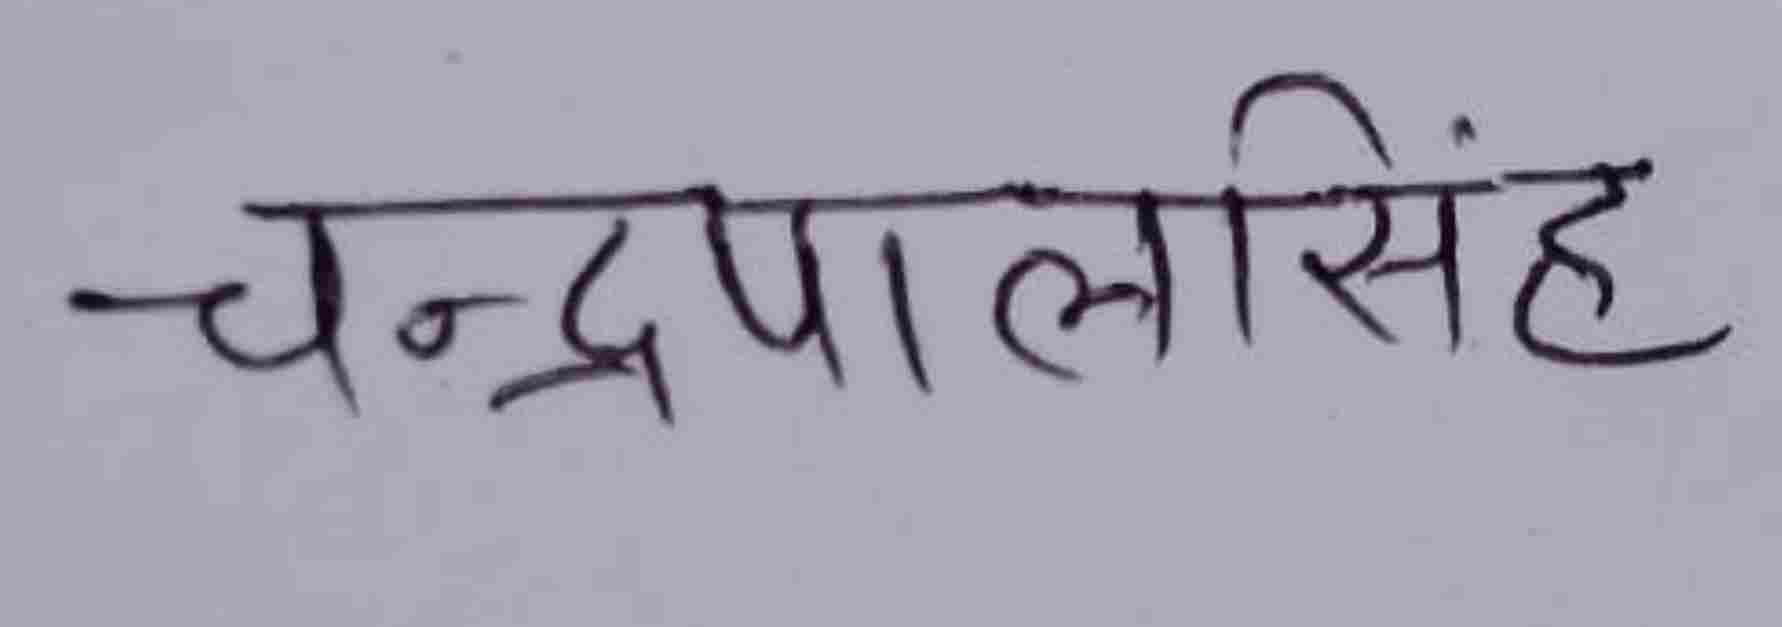 चन्द्रपालसिंह